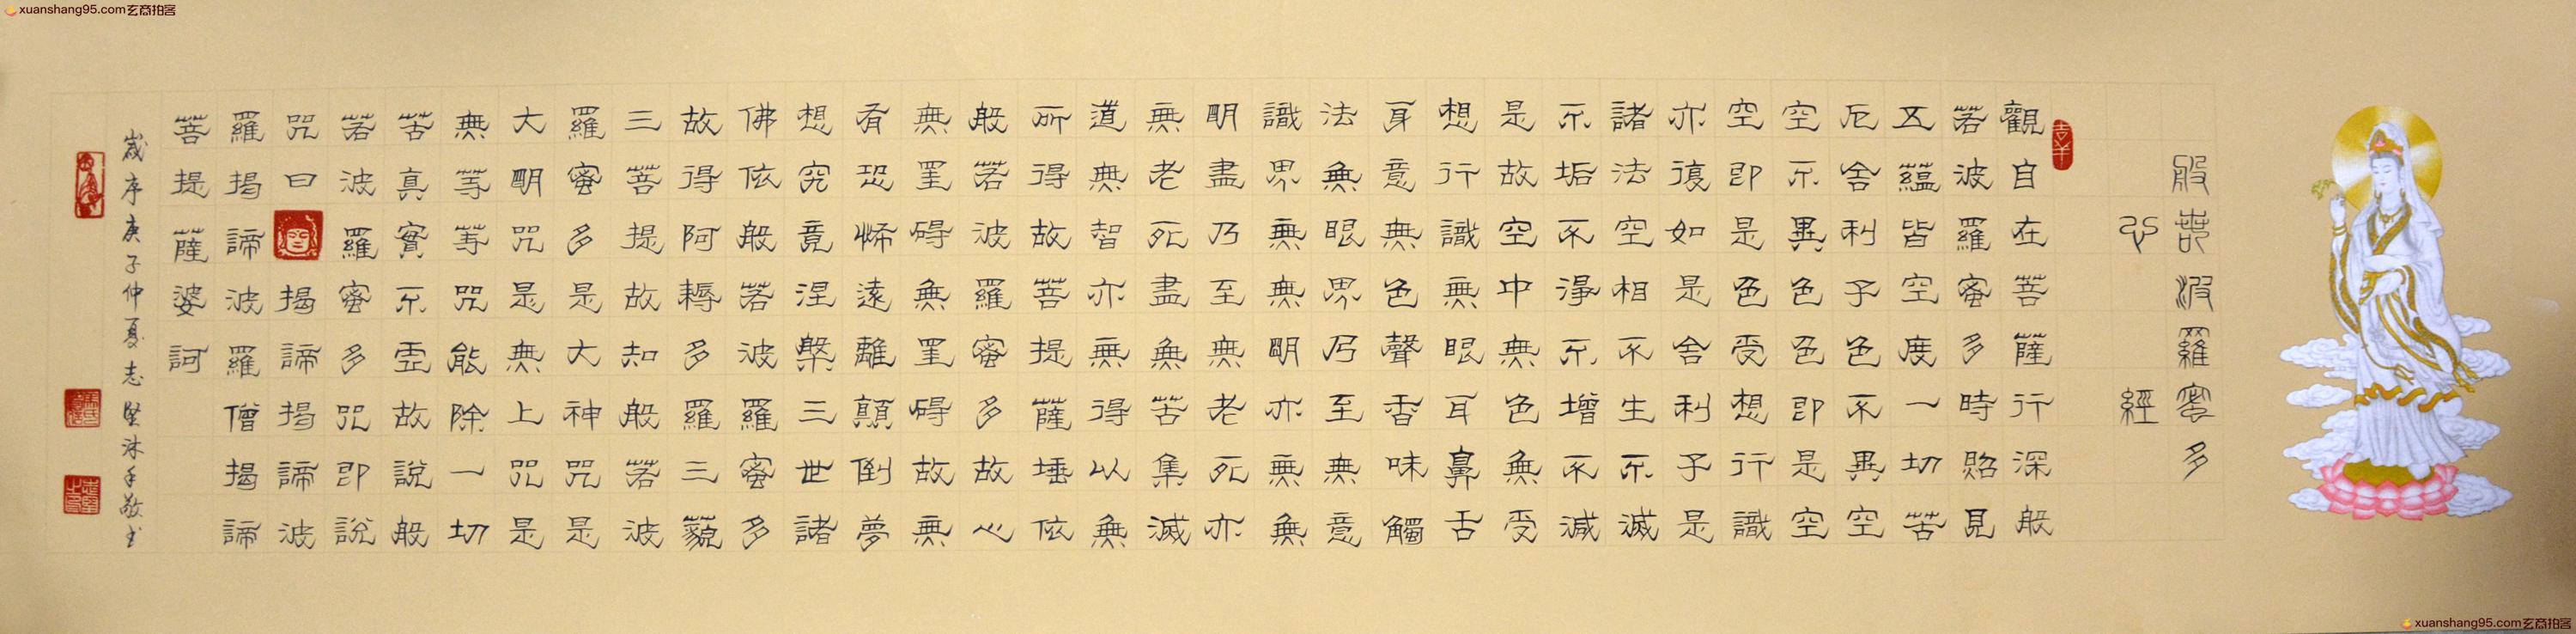 xuanshang95.com玄商拍客
般若波羅蜜多
心經
觀自在菩薩行深般
若波羅蜜多時照見
五蘊皆空度一切苦
厄舍利子色不異空
空不異色色即是空
空即是色受想行識
亦復如是舍利子是
諸法空相不生不滅
不垢不淨不增不減
是故空中無色無受
想行識無眼耳鼻舌
身意無色聲香味觸
法無眼界乃至無意
識界無無明亦無無
明盡乃至無老死亦
無老死盡無苦集滅
道無智亦無得以無
所得故菩提薩埵依
般若波羅蜜多故心
無罣碍無罣碍故無
有恐怖遠離顛倒夢
想究竟涅槃三世諸
佛依般若波羅蜜多
故得阿耨多羅三藐
三菩提故知般若波
羅蜜多是大神咒是
大明咒是無上咒是
無等等咒能除一切
苦真實不虛故說般
若波羅蜜多咒即說
咒曰揭諦揭諦波
羅揭諦波羅僧揭諦
菩提薩婆訶
歲序庚子仲夏志堅沐手敬书
xuanshang95.com玄商拍客